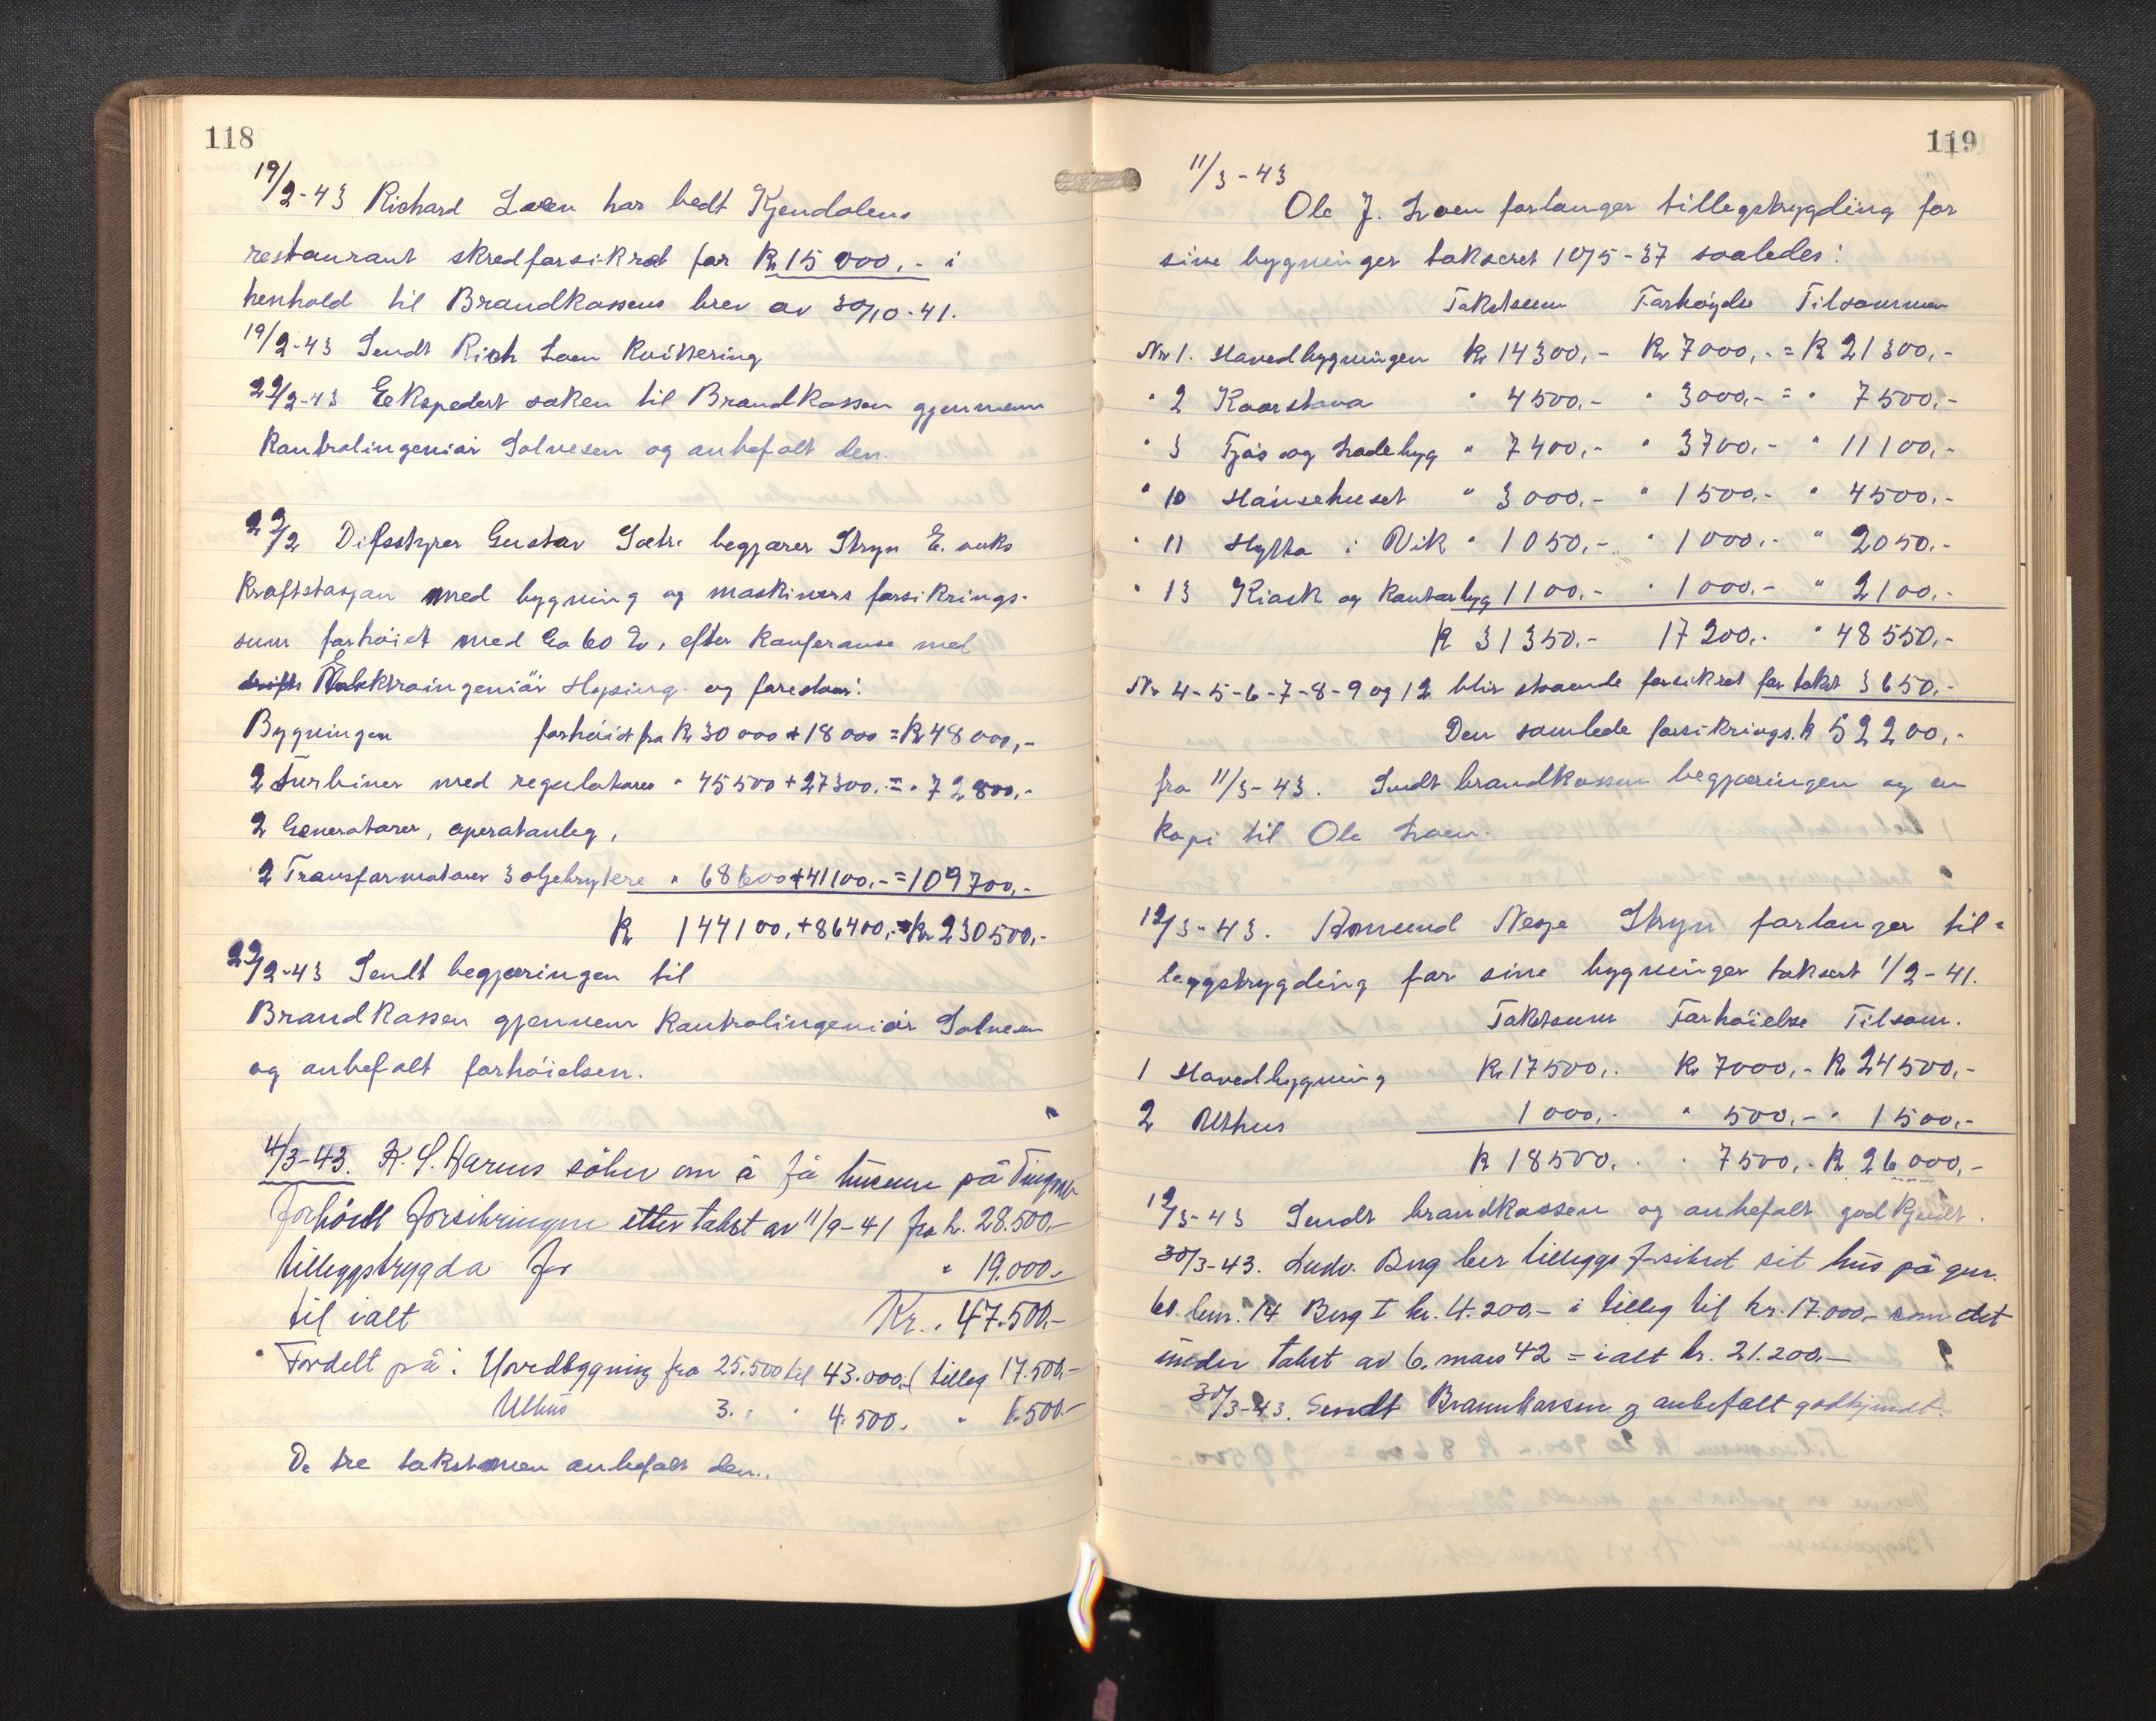 118
19/2-43 Richard Loen har bedt Kjendalens
restaurant skredforsikret for Kr 15 000,- i
henhold til Brandkassens brev av 30/10-41.
19/2-43 Sendt Rich Loen Kvittering
22/2-43 Ekspedert saken til Brandkassen gjennem
Kontrolingeniør Solvesen og anbefalt den.
22/2 Difsstyrer Gustav Sætre begjærer Stryn E. verks
Kraftstasjon med bygning og maskiners forsikrings-
sum forhøiet med Ca 60 %, efter Konferanse med
Elektroingeniør Hysing og foreslaar:
Bygningen forhöiet fra Kr 30 000 + 18 000 = Kr 48 000,-
2 Turbiner med regulatorer " 45500 + 27300,- = " 72800,-
2 Generatorer, aperatanleg,
2 Transformatorer 3 oljebrytere " 68600 + 41100,- = 109700,-
Kr 144100,+86400,- = Kr 230500,-
22/2-43 Sendt begjæringen til
Brandkassen gjennem Kontrolingeniør Solvesen
og anbefalt forhøielsen.
4/3-43. K. S. søker om å få husene på
forhöiet forsikringen etter takst av 11/9-41 fra kr. 28.500,-
tilleggstrygda for " 19.000,-
til ialt Kr. 47.500,-
Fordelt på: Hovedbygning fra 25.500 til 43.000,- ( tilleg 17.500,-
Uthus 3. " " 4.500. " 1.500,-
De tre takstmen anbefalt den.
119
11/3-43
Ole J. Loen forlanger tillegstrygding for
sine bygninger takseret 10/5-37 saaledes:
Takstsum Forhøyelse Tilsammen
Nr 1. Hovedbygningen Kr 14300,- Kr 7000,- = Kr 21300,-
" 2 Kaarstova " 4500,- " 3000,- = " 7500,-
" 3 Fjøs og Ladebyg " 7400,- " 3700,- " 11100,-
" 10 Hönsehuset " 3000,- " 1500,- " 4500,-
" 11 Hytta i Vik " 1050,- " 1000,- " 2050,-
" 13 Kiosk og Kontorbyg 1100,- " 1000,- " 2100,-
Kr 31350,- 17200,- " 48550,-
Nr 4-5-6-7-8-9 og 12 blir staaende forsikret for takst 3650,-
Den samlede forsikrings. k 52200,-
fra 11/3-43. Sendt brandkassen begjæringen og en
Kopi til Ole Loen.
12/3-43. Rasmund Nesje Stryn forlanger til-
leggstrygding for sine bygninger taksert 1/2-41.
Takstsum Forhöielse Tilsam.
1 Hovedbygning Kr 17500,- Kr 7000,- Kr 24500,-
2 Uthus 1000,- " 500,- " 1500,-
Kr 18500. . . 7500,- Kr 26000,-
12/3-43 Sendt brandkassen og anbefalt godkjendt.
30/3-43. Ludv. Berg ber tilleggsforsikret sit hus på gnr.
60. bnr. 14 Berg I kr. 4.200,- i tilleg til kr. 17.000,- som det
under takst av 6. mars 42 = ialt kr. 21.200,-
30/3-43. Sendt Brannkassen og anbefalt godkjendt.